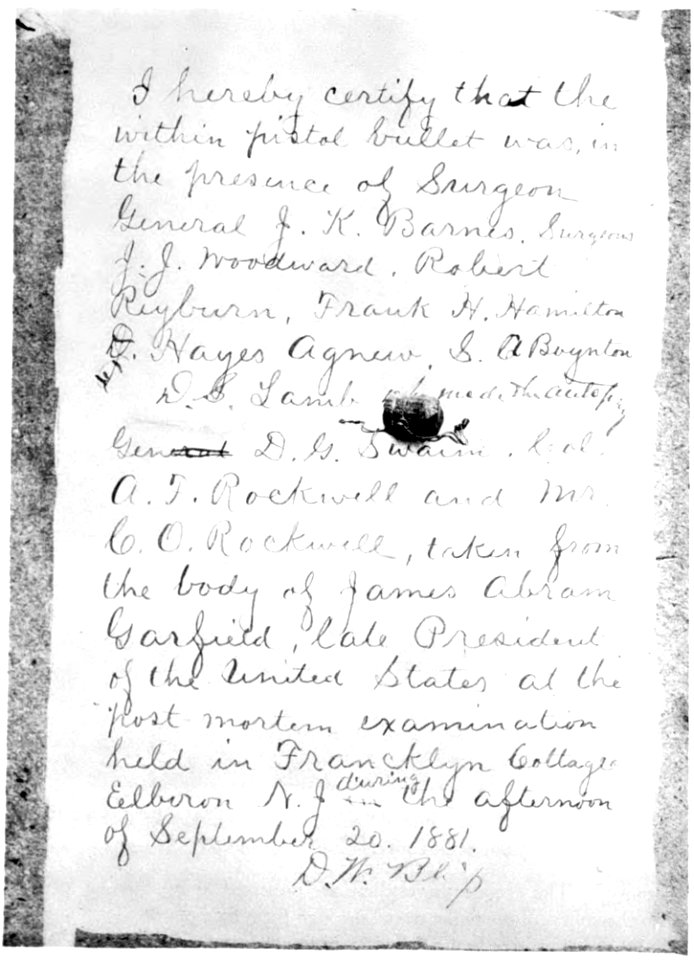 I hereby certify that the
within pistol bullet was, in
the presence of Surgeon
General J. K. Barnes, Surgeons
J. J. Woodward, Robert
Reyburn, Frank H. Hamilton
D. Hayes Agnew, S. A Boynton
D. S. Lamb who made the autopsy
General D. G. Swaim, Col.
A. F. Rockwell and Mr.
C. O. Rockwell, taken from
the body of James Abram
Garfield, late President
of the United States at the
post mortem examination
held in Francklyn Cottage
Elberon N. J during
in the afternoon
of September 20. 1881.
D. W. Bliss